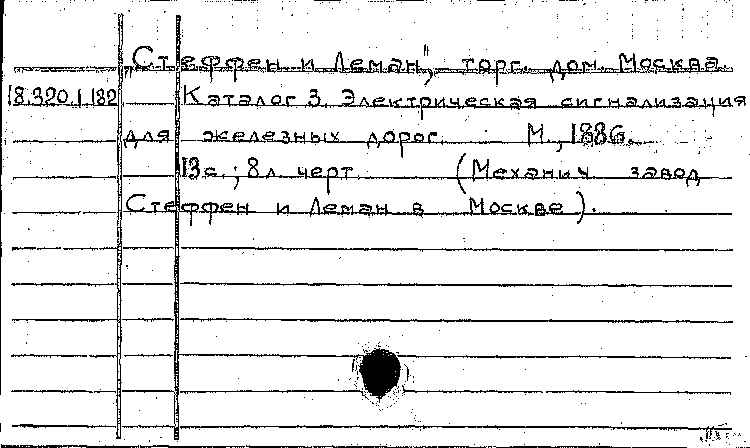 „Стеффен и Леман", торг. дом. Москва.
18.320.1.182 Каталог 3. Электрическая сигнализация
для железных дорог. М., 1886.
13с.; 8л. черт. (Механич. завод
Стеффен и Леман в Москве).